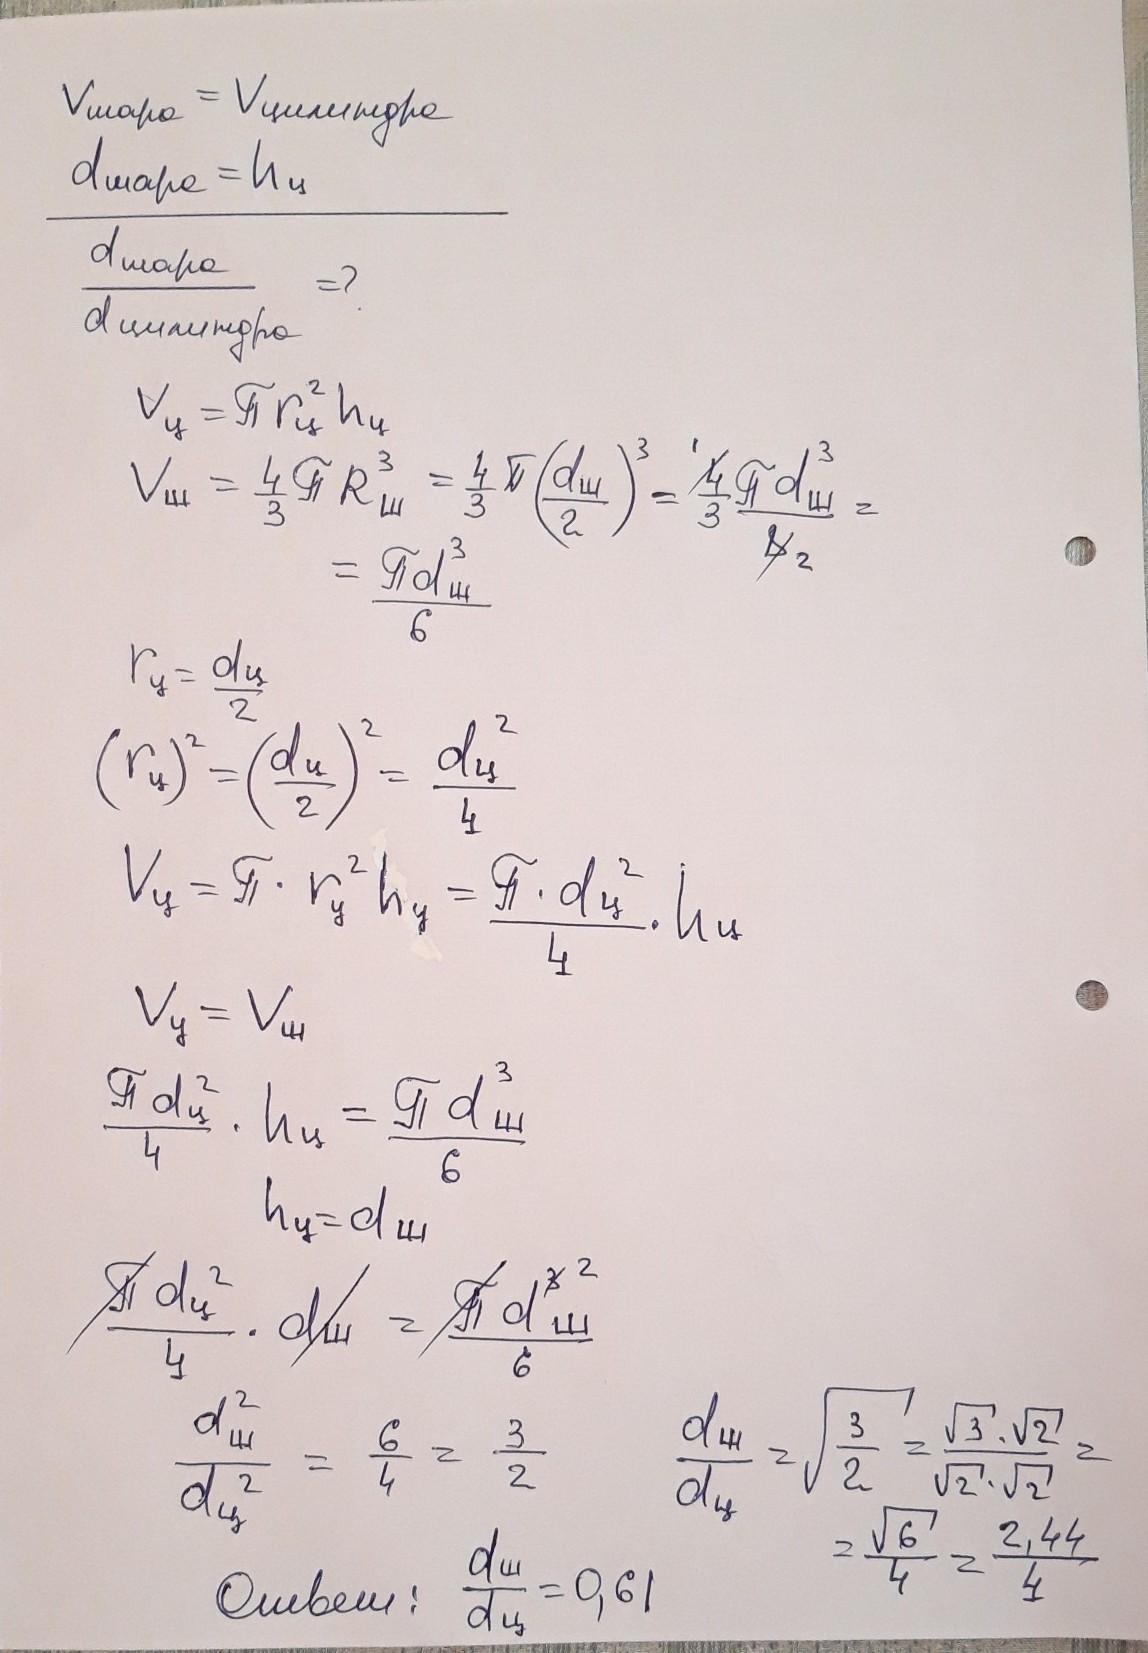 Vшара = Vцилиндра
dшара = hц
dшара / dцилиндра = ?
Vц = πrц²hц
Vш = 4/3 πRш³ = 4/3 π(dш/2)³ = 4/3 πdш³/8 2 =
= πdш³/6
rц = dц/2
(rц)² = (dц/2)² = dц²/4
Vц = π · rц²hц = π · dц²/4 · hц
Vц = Vш
πdц²/4 · hц = πdш³/6
hц = dш
πdц²/4 · dш = πdш³ ²/6
dш²/dц² = 6/4 = 3/2
dш/dц = √(3/2) = √3 · √2/√2 · √2 =
= √6/4 = 2,44/4
Ответ: dш/dц = 0,61